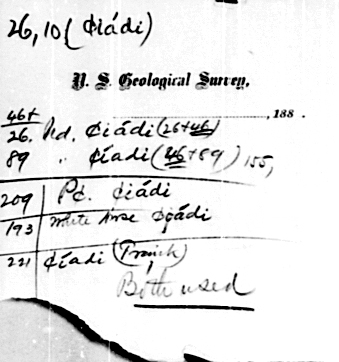 26, 10 { ȼiádi )
U. S. Geological Survey,
, 188 .
46+
26. Pd. ȼiádi (26+46)
89 " ȼíadi (46+89) 155,
209 Pd. ȼiádi
193 White Horse ȼiádi
221 ȼíadi (French)
Both used